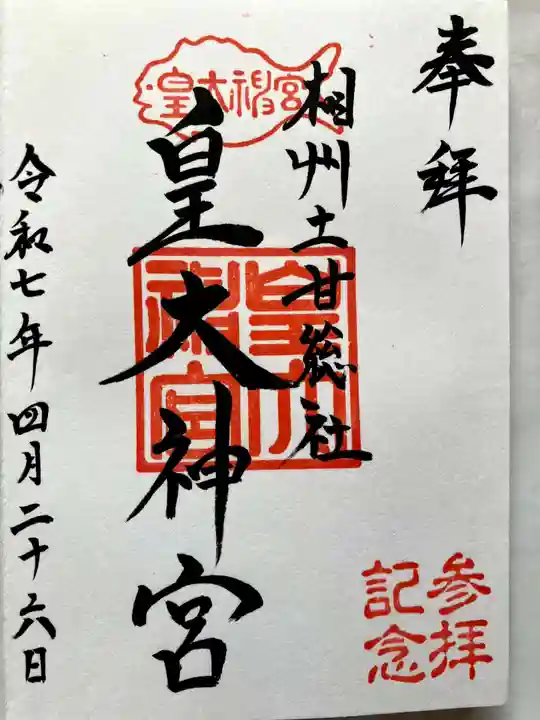 奉拝
相州土甘総社
皇大神宮
皇大神宮
皇大神宮
令和七年四月二十六日
参拝
記念